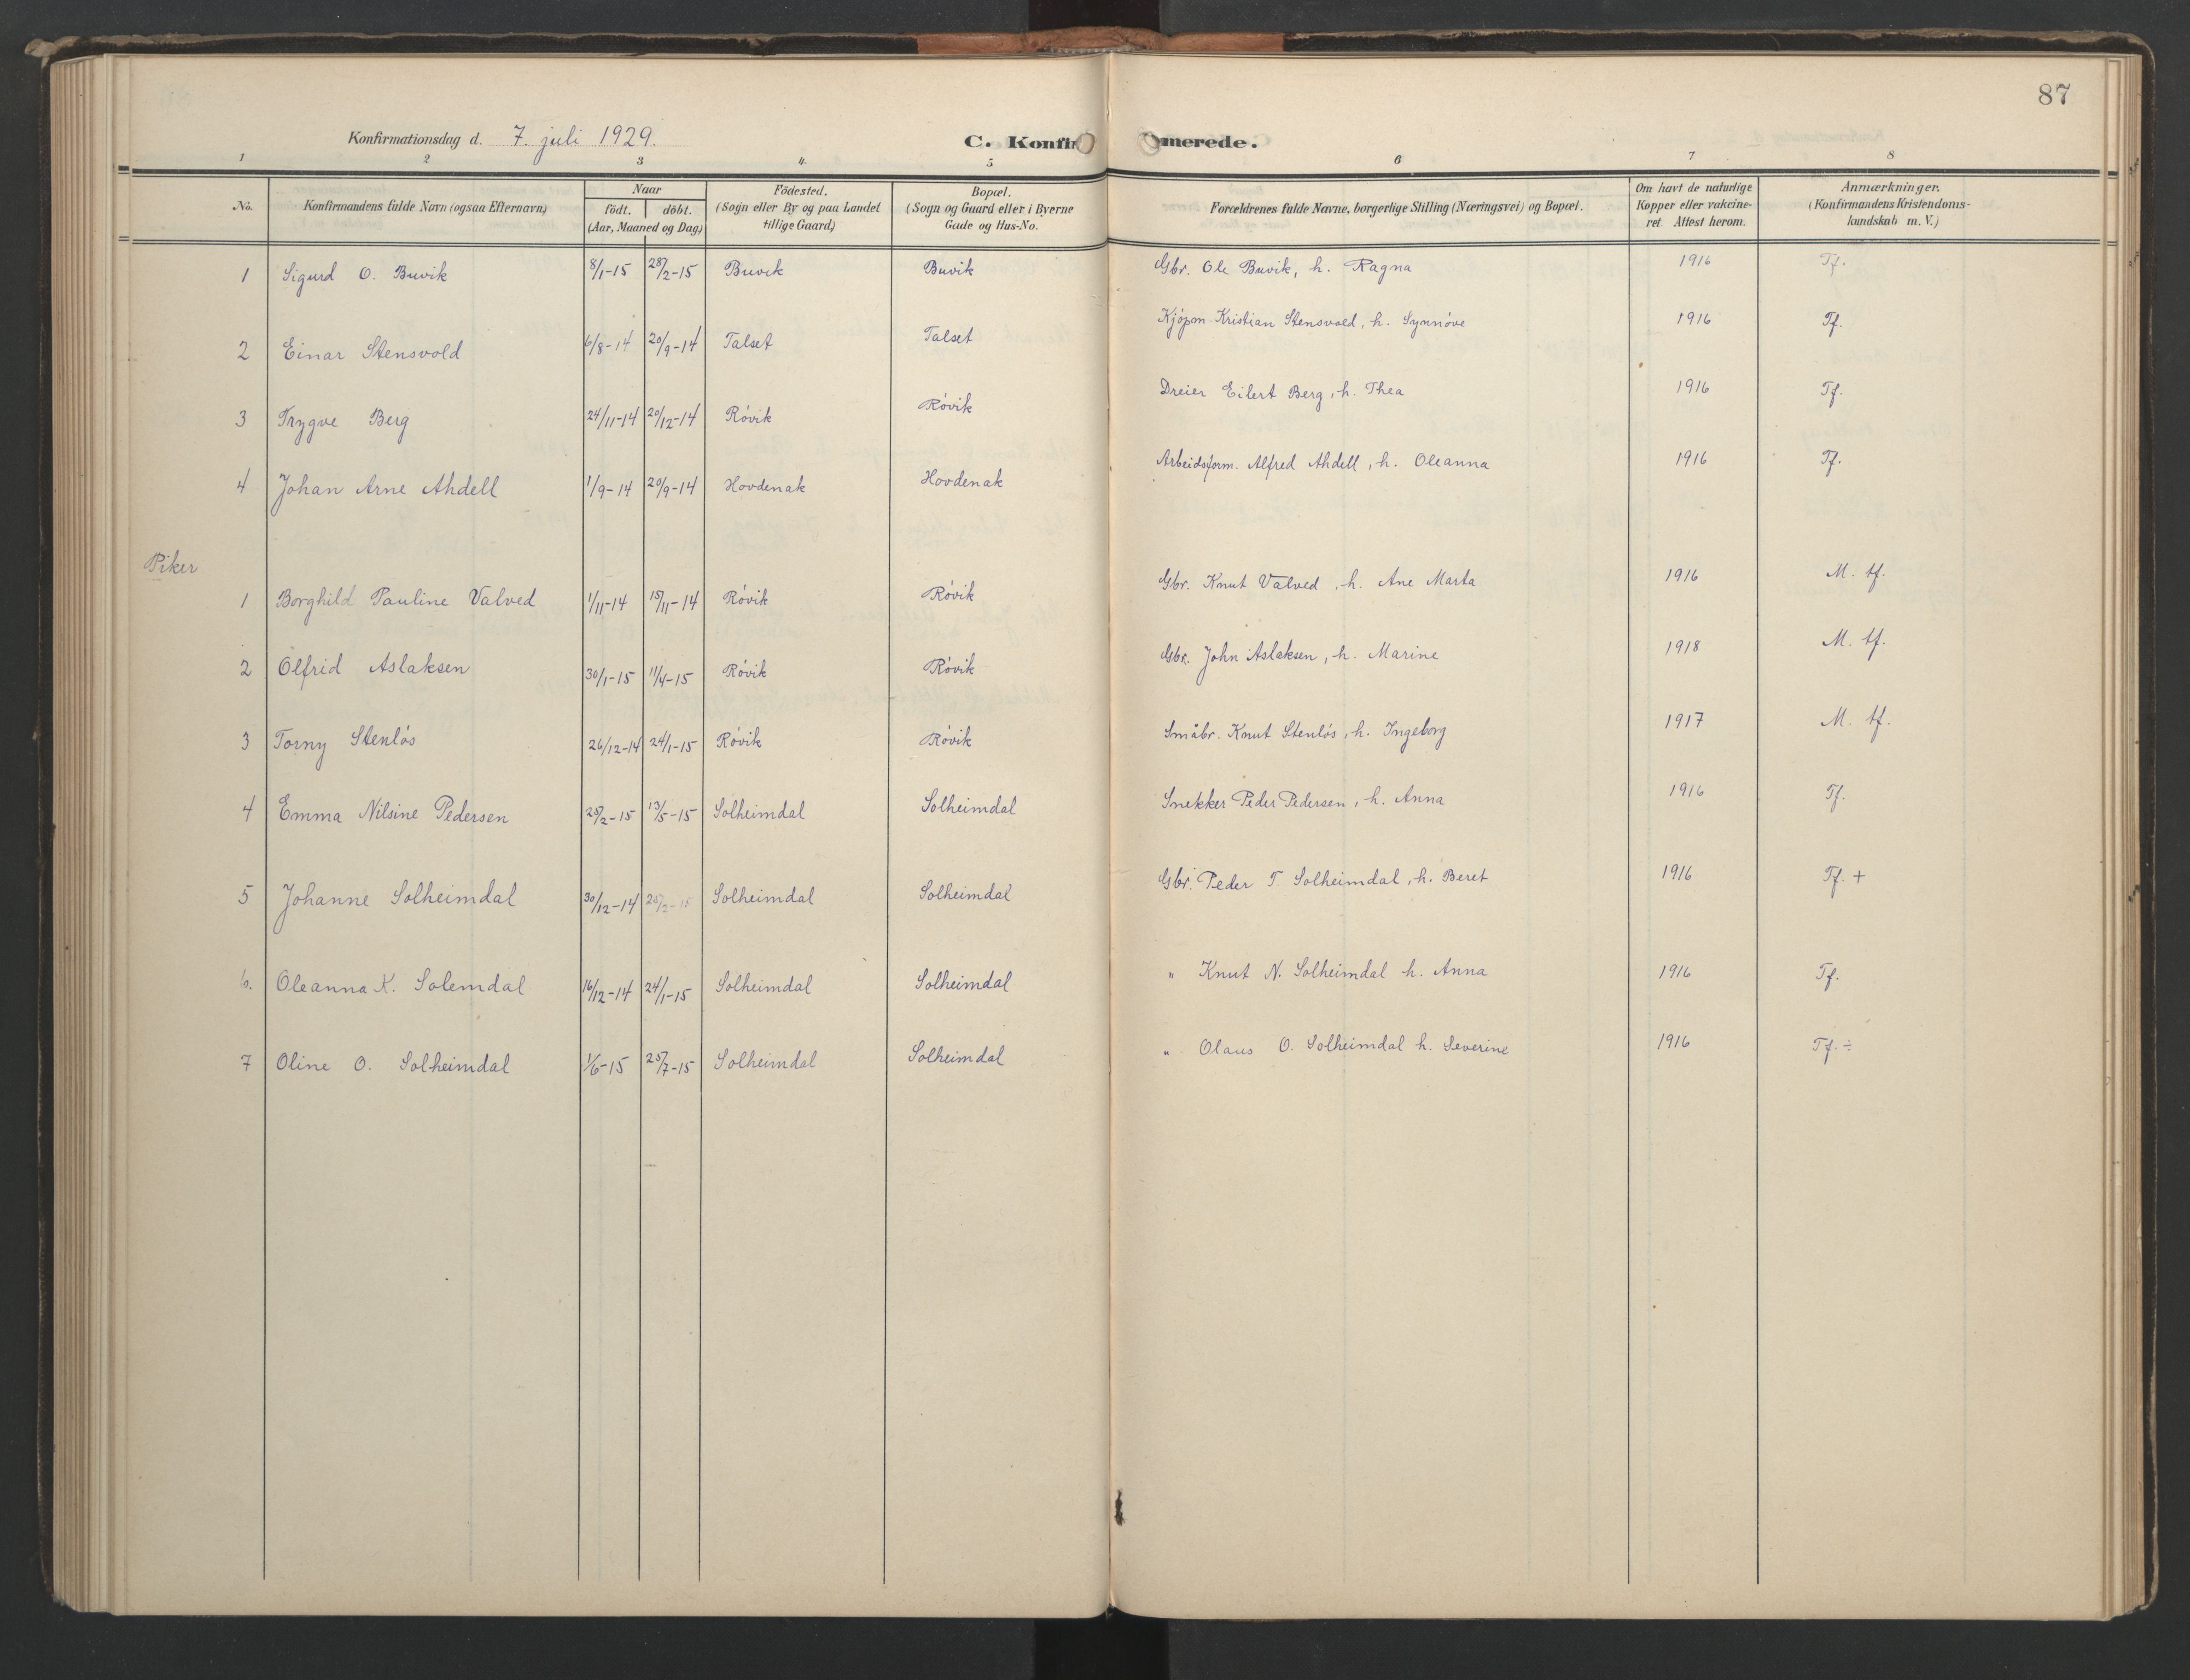 87
Konfirmationsdag d. 7. juli 1929. C. Konfirmerede.
1 2 3 4. 5 6 7 8
No. Konfirmandens fulde Navn (ogsaa Efternavn) Naar födt. döbt. (Aar, Maaned og Dag) Födested. (Sogn eller By og paa Landet tillige Gaard) Bopæl. (Sogn og Gaard eller i Byerne Gade og Hus-No. Forældrenes fulde Navne, borgerlige Stilling (Næringsvei) og Bopæl. Om havt de naturlige Kopper eller vakcineret. Attest herom. Anmærkninger. (Konfirmandens Kristendomskundskab m. V.)
1 Sigurd O. Buvik 8/1-15 28/2-15 Buvik Buvik Gbr. Ole Buvik, h. Ragna 1916 Tf.
2 Einar Stensvold 6/8-14 20/9-14 Talset Talset Kjópm. Kristian Stensvold, h. Synnóve 1916 Tf.
3 Trygve Berg 24/11-14 20/12-14 Róvik Róvik Dreier Eilert Berg, h. Thea 1916 Tf.
4 Johan Arne Ahdell 1/9-14 20/9-14 Hovdenak Hovdenak Arbeidsform. Alfred Ahdell, h. Oleanna 1916 Tf.
Piker
1 Borghild Pauline Valved 1/11-14 15/11-14 Róvik Róvik Gbr. Knut Valved, h. Ane Marta 1916 M. tf.
2 Olfrid Aslaksen 30/1-15 11/4-15 Róvik Róvik Gbr. John Aslaksen, h. Marine 1918 M. tf.
3 Torny Stenlós 26/12-14 24/1-15 Róvik Róvik Småbr. Knut Stenlós, h. Ingeborg 1917 M. tf.
4 Emma Nilsine Pedersen 25/2-15 13/5-15 Solheimdal Solheimdal Snekker Peder Pedersen, h. Anna 1916 Tf.
5 Johanne Solheimdal 30/12-14 25/2-15 Solheimdal Solheimdal Gbr. Peder T. Solheimdal, h. Beret 1916 Tf. +
6. Oleanna K. Solemdal 16/12-14 24/1-15 Solheimdal Solheimdal " Knut N. Solheimdal h. Anna 1916 Tf.
7 Oline O. Solheimdal 1/6-15 25/7-15 Solheimdal Solheimdal " Olaus O. Solheimdal h. Severine 1916 Tf. ÷